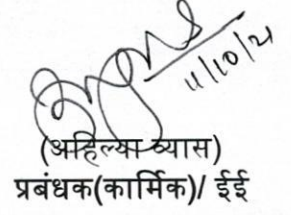 11/10/21
(अहिल्या व्यास)
प्रबंधक(कार्मिक)/ ईई